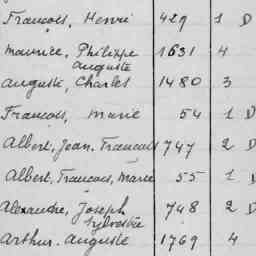 François, Henri 429 1 D
Maurice, Philippe Auguste 1631 4
Auguste, Charles 1480 3
François, Marie 54 1 D
Albert, Jean, François 747 2 D
Albert, François, Marie 55 1 D
Alexandre, Joseph Sylvestre 748 2 D
Arthur. Auguste 1769 4